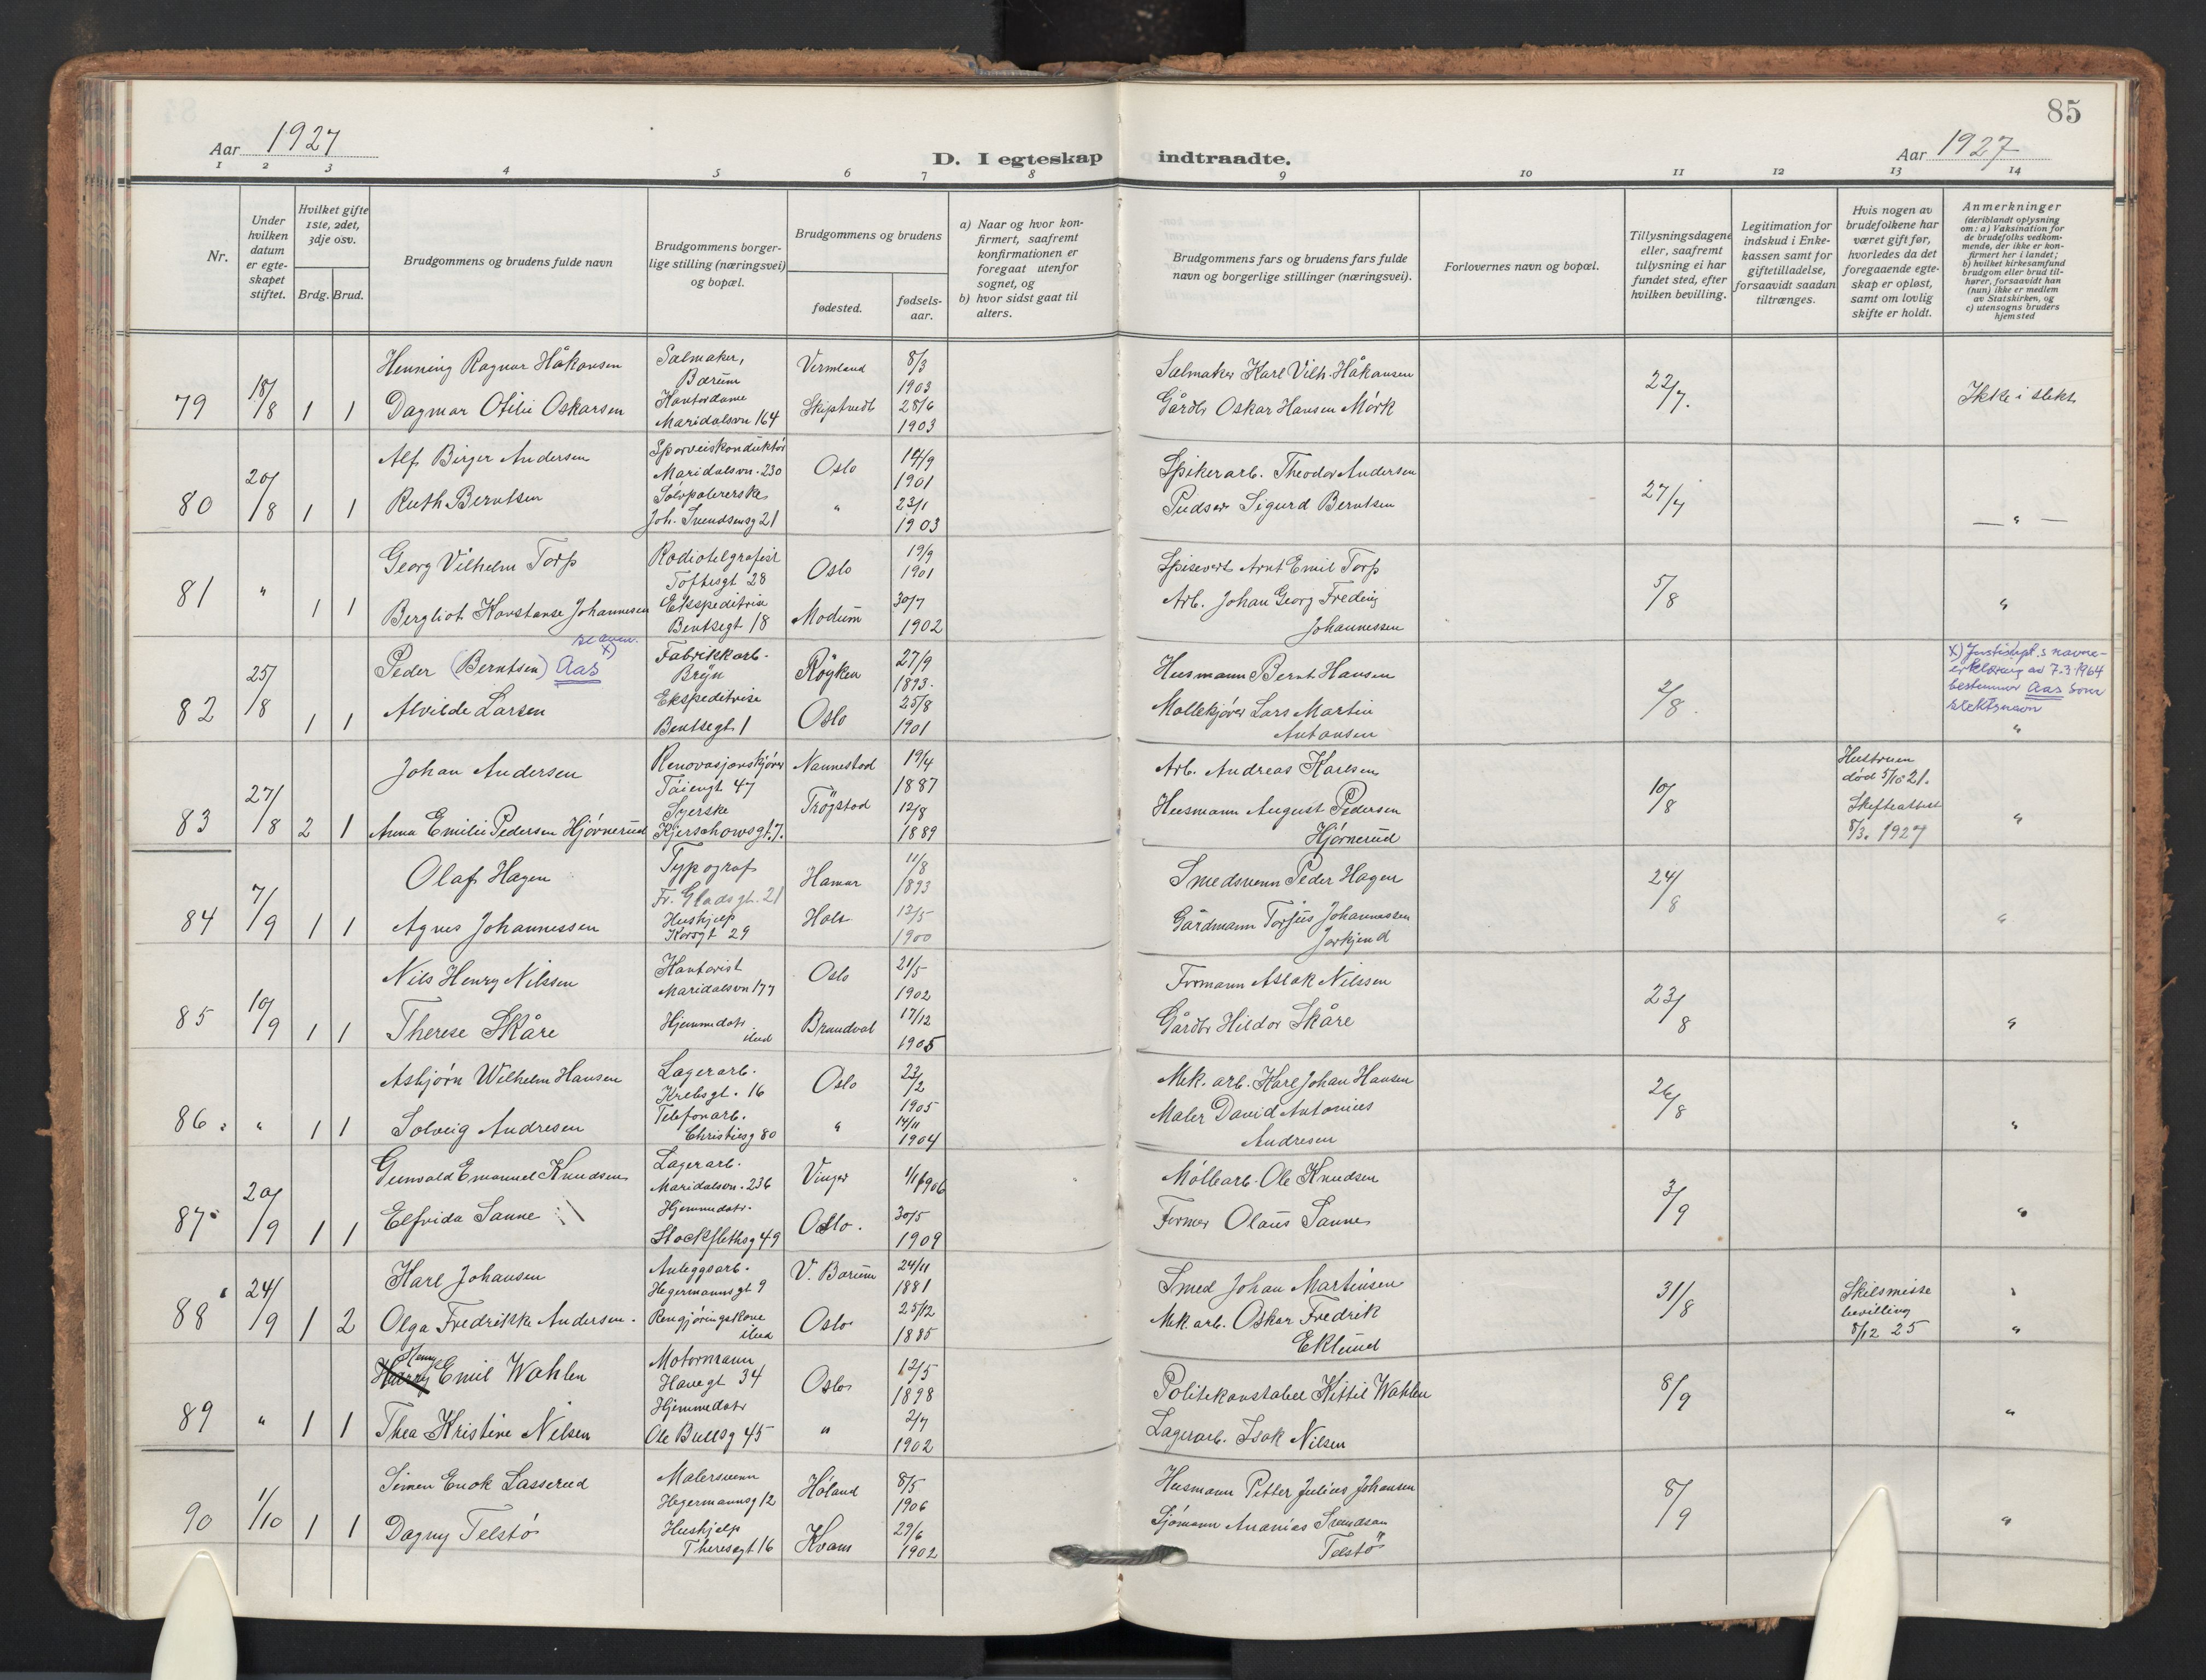 85
Aar 1927
D. I egteskap indtraadte.
Aar 1927
1 2 3 4 5 6 7 8 9 10 11 12 13 14
Nr.
Under
hvilken
datum
er egte-
skapet
stiftet.
Hvilket gifte
1ste, 2det,
3dje osv.
Brdg. Brud.
Brudgommens og brudens fulde navn
Brudgommens borger-
lige stilling (næringsvei)
og bopæl.
Brudgommens og brudens
fødested.
fødsels-
aar.
a) Naar og hvor kon-
firmert, saafremt
konfirmationen er
foregaat utenfor
sognet, og
b) hvor sidst gaat til
alters.
Brudgommens fars og brudens fars fulde
navn og borgerlige stillinger (næringsvei).
Forlovernes navn og bopæl.
Tillysningsdagene
eller, saafremt
tillysning ei har
fundet sted, efter
hvilken bevilling.
Legitimation for
indskud i Enke-
kassen samt for
giftetilladelse,
forsaavidt saadan
tiltrænges.
Hvis nogen av
brudefolkene har
været gift før,
hvorledes da det
foregaaende egte-
skap er opløst,
samt om lovlig
skifte er holdt.
Anmerkninger
(deriblandt oplysning
om: a) Vaksination for
de brudefolks vedkom-
mende, der ikke er kon-
firmert her i landet;
b) hvilket kirkesamfund
brudgom eller brud til-
hører, forsaavidt han
(hun) ikke er medlem
av Statskirken, og
c) utensogns bruders
hjemsted
79 18/8 1 1
Henning Ragnar Håkansen
Dagmar Otilie Oskarsen
Salmaker,
Bærum
Kontordame
Maridalsvn 164
Vermland
Skiptvedt
8/3
1903
28/6
1903
Salmaker Karl Vilh. Håkansen
Gårdbr Oskar Hansen Mörk
22/7.
Ikke i slekt
80 20/8 1 1
Alf Birger Andersen
Ruth Berntsen
Sporveiskonduktör
Maridalsvn. 230
Sölvpolererske
Joh. Svendsensg 21
Oslo
"
14/9
1901
23/1
1903
Spikerarb. Theodor Andersen
Pudser Sigurd Berntsen
27/7
— " —
81 " 1 1
Georg Vilhelm Torp
Bergliot Konstanse Johannesen
Radiotelgrafist
Toftesgt 28
Ekspeditrise
Bentsegt 18
Oslo
Modum
19/9
1901
30/7
1902
Spisevert Arnt Emil Torp
Arb. Johan Georg Fredrig
Johannessen
5/8
"
82 25/8 1 1
Peder (Berntsen) Aas
x)
Alvilde Larsen
Fabrikkarb.
Bryn
Ekspeditrise
Bentsegt 1
Röyken
Oslo
27/9
1893.
25/8
1901
Husmann Bernt Hansen
Mollekjörer Lars Martin
Antonsen
2/8
x) Justisdept.s navne-
erklæring av 7.3.1964
bestemmer Aas som
slektsnavn
"
83 27/8 2 1
Johan Andersen
Anna Emilie Pedersen Hjörnerud
Renovasjonskjörer
Töiengt 47
Syerske
Kjerschowsgt. 7.
Nannestad
Trögstad
19/4
1887
12/8
1889
Arb. Andreas Karlsen
Husmann August Pedersen
Hjörnerud
10/8
Hustruen
död 5/10 21.
Skifteattest
8/3. 1927
"
84 7/9 1 1
Olaf Hagen
Agnes Johannessen
Typograf
Fr. Gladsgt. 21
Hushjelp
Korsgt 29
Hamar
Holt
11/8
1893
12/5
1900
Smedsvenn Peder Hagen
Gårdmann Torjus Johannessen
24/8
"
85 10/9 1 1
Nils Henry Nilssen
Therese Skåre
Kontorist
Maridalsvn 177
Hjemmedatr
Oslo
Brandval
21/5
1902
17/12
1905
Formann Aslak Nilssen
Gårdbr Hildor Skåre
23/8
"
86 " 1 1
Asbjörn Wilhelm Hansen
Solveig Andresen
Lagerarb.
Krebsgt. 16
Telefonarb.
Christiesg 80
Oslo
"
23/2
1905
14/11
1904
Mek. arb. Karl Johan Hansen
Maler David Antonius
Andresen
26/8
"
87 20/9 1 1
Gunvald Emanuel Knudsen
Elfrida Sanne
Lagerarb.
Maridalsvn. 236
Hjemmedatr.
Stockflethsg 49
Vinger
Oslo.
1/1 1906
30/5
1909
Möllearb. Ole Knudsen
Former Olaus Sanne
3/9
"
88 24/9 1 2
Karl Johansen
Olga Fredrikke Andersen.
Anleggsarb.
Hegermannsgt 9
Rengjöringskone
ibid
V. Bærum
Oslo
24/11
1881
25/12
1885
Smed Johan Martinsen
Mek. arb. Oskar Fredrik
Eklund
31/8
Skilsmisse
bevilling
8/12 25
"
89 " 1 1
Henry
Harry Emil Wahlen
Thea Kristine Nilsen
Motormann
Havegt 34
Hjemmedatr
Ole Bullsg 45
Oslo
"
12/5
1898
2/7
1902
Politikonstabel Kittil Wahlen
Lagerarb. Isak Nilsen
8/9
"
90 1/10 1 1
Simen Enok Lasserud
Dagny Telstö
Malersvenn
Hegermannsg 12
Hushjelp
Theresegt 16
Höland
Kvam
8/5
1906
29/6
1902
Husmann Petter Julius Johansen
Sjömann Ananias Svendsen
Telstö
8/9
"